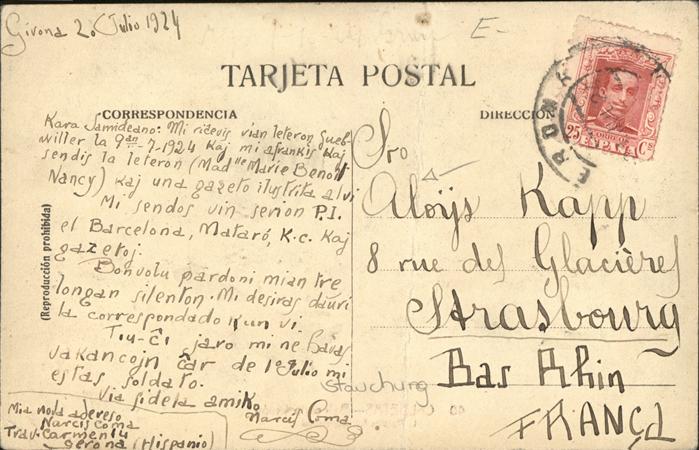 Girona 20 Julio 1924
E-
TARJETA POSTAL
CORRESPONDENCIA
DIRECCIÓN
(Reproducción prohibida)
Kara Samideano: Mi ricevis vian leteron Gueb-
willer la 9an-7-1924 Kaj mi afrankis kaj
sendis la leteron (Madlle Marie Benoit
Nancy) kaj una gazeto ilustrita al vi
Mi sendos vin serion P.I.
el Barcelona, Mataró, K.c. Kaj
gazetoj.
Bonvolu pardoni mian tre
longan silenton. Mi desiras dauri
la correspondado kun vi.
Tiu-ĉi jaro mi ne havas
vakancojn ĉar de 1º Julio mi
estas soldato.
Via fidela amiko
Narcis Coma
Mia nova adereso
Narcis Coma
Trav. Carmen 14
Gerona (Hispanio)
Sro
Aloijs Kapp
8 rue des Glacières
Strasbourg
Bas Rhin
FRANCA
Stauchung
CORREOS
ESPAÑA
25 Cs